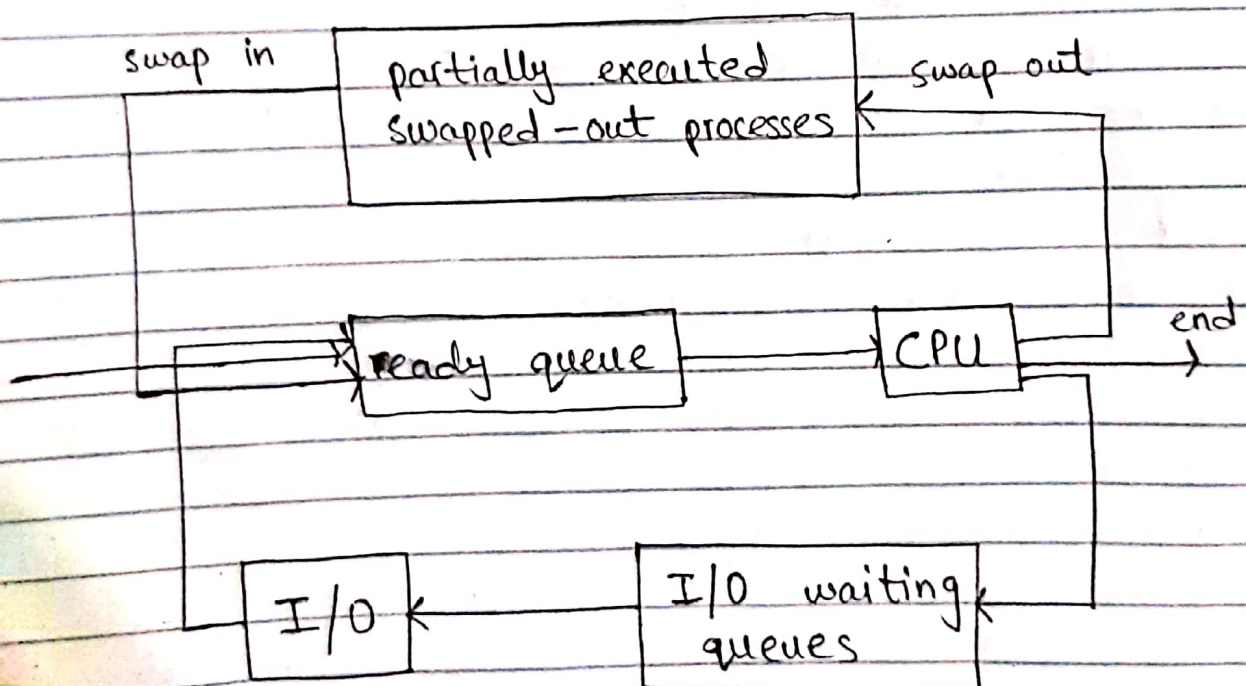 swap in
partially executed
swapped-out processes
swap out
ready queue
CPU
end
I/O
I/O waiting
queues